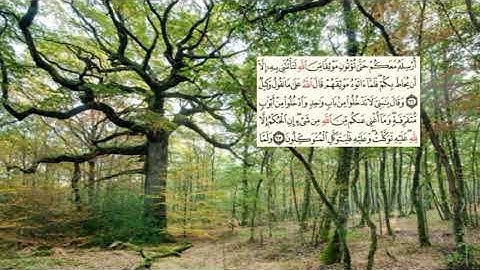 أُرْسِلَهُۥ مَعَكُمْ حَتَّىٰ تُؤْتُونِ مَوْثِقًا مِّنَ ٱللَّهِ لَتَأْتُنَّنِى بِهِۦٓ إِلَّآ
أَن يُحَاطَ بِكُمْ فَلَمَّآ ءَاتَوْهُ مَوْثِقَهُمْ قَالَ ٱللَّهُ عَلَىٰ مَا نَقُولُ وَكِيلٌ
٦٦ وَقَالَ يَٰبَنِىَّ لَا تَدْخُلُوا۟ مِنۢ بَابٍ وَٰحِدٍ وَٱدْخُلُوا۟ مِنْ أَبْوَٰبٍ
مُّتَفَرِّقَةٍ وَمَآ أُغْنِى عَنكُم مِّنَ ٱللَّهِ مِن شَىْءٍ إِنِ ٱلْحُكْمُ إِلَّا
لِلَّهِ عَلَيْهِ تَوَكَّلْتُ وَعَلَيْهِ فَلْيَتَوَكَّلِ ٱلْمُتَوَكِّلُونَ ٦٧ وَلَمَّا